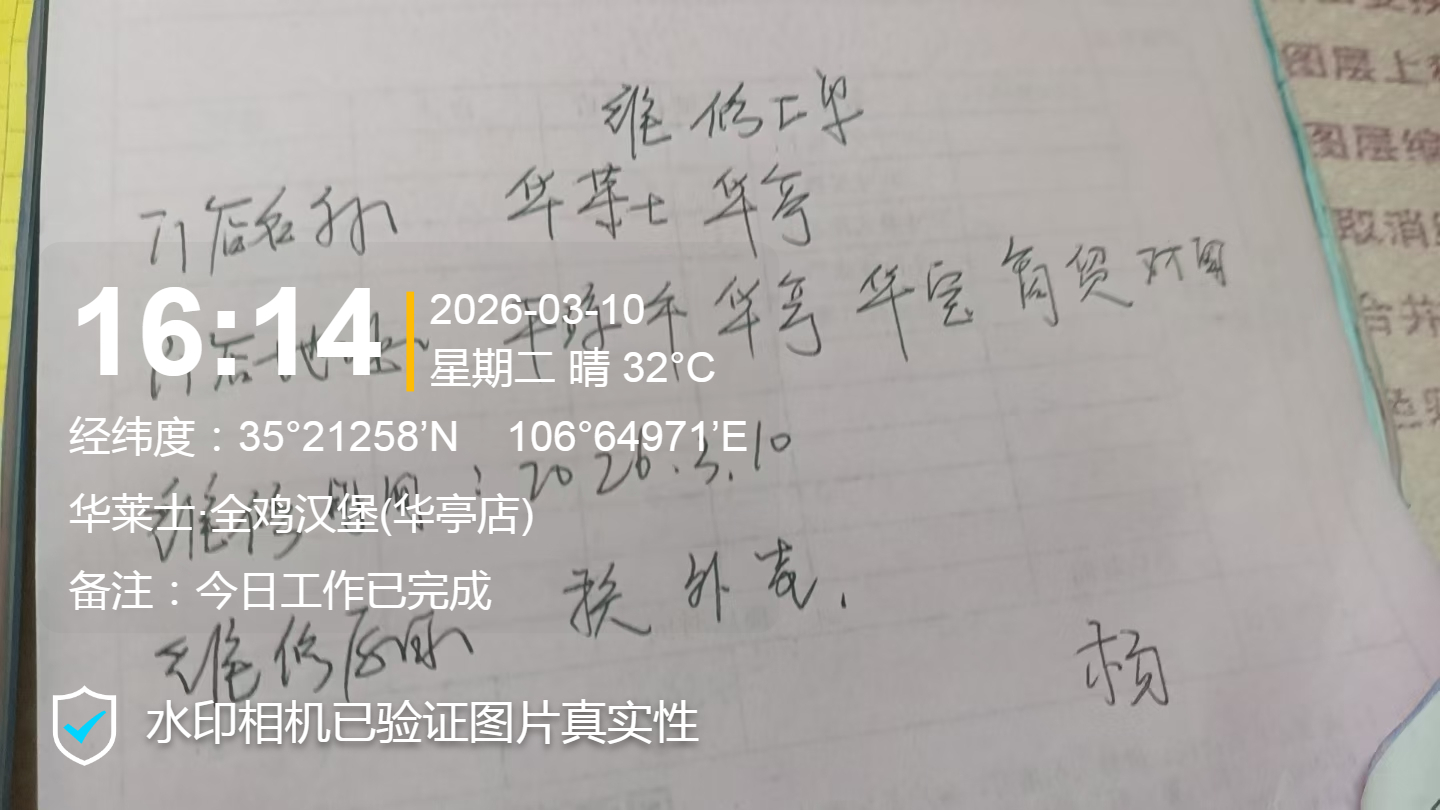 维修工单
门店名称 华莱士 华亭
门店地址 平凉市 华亭 华宝商贸对面
维修时间：2026.3.10
维修原因 换外壳.
杨
16:14
2026-03-10
星期二 晴 32°C
经纬度：35°21258'N 106°64971'E
华莱士·全鸡汉堡(华亭店)
备注：今日工作已完成
水印相机已验证图片真实性
图层上
图层编
取消
合并